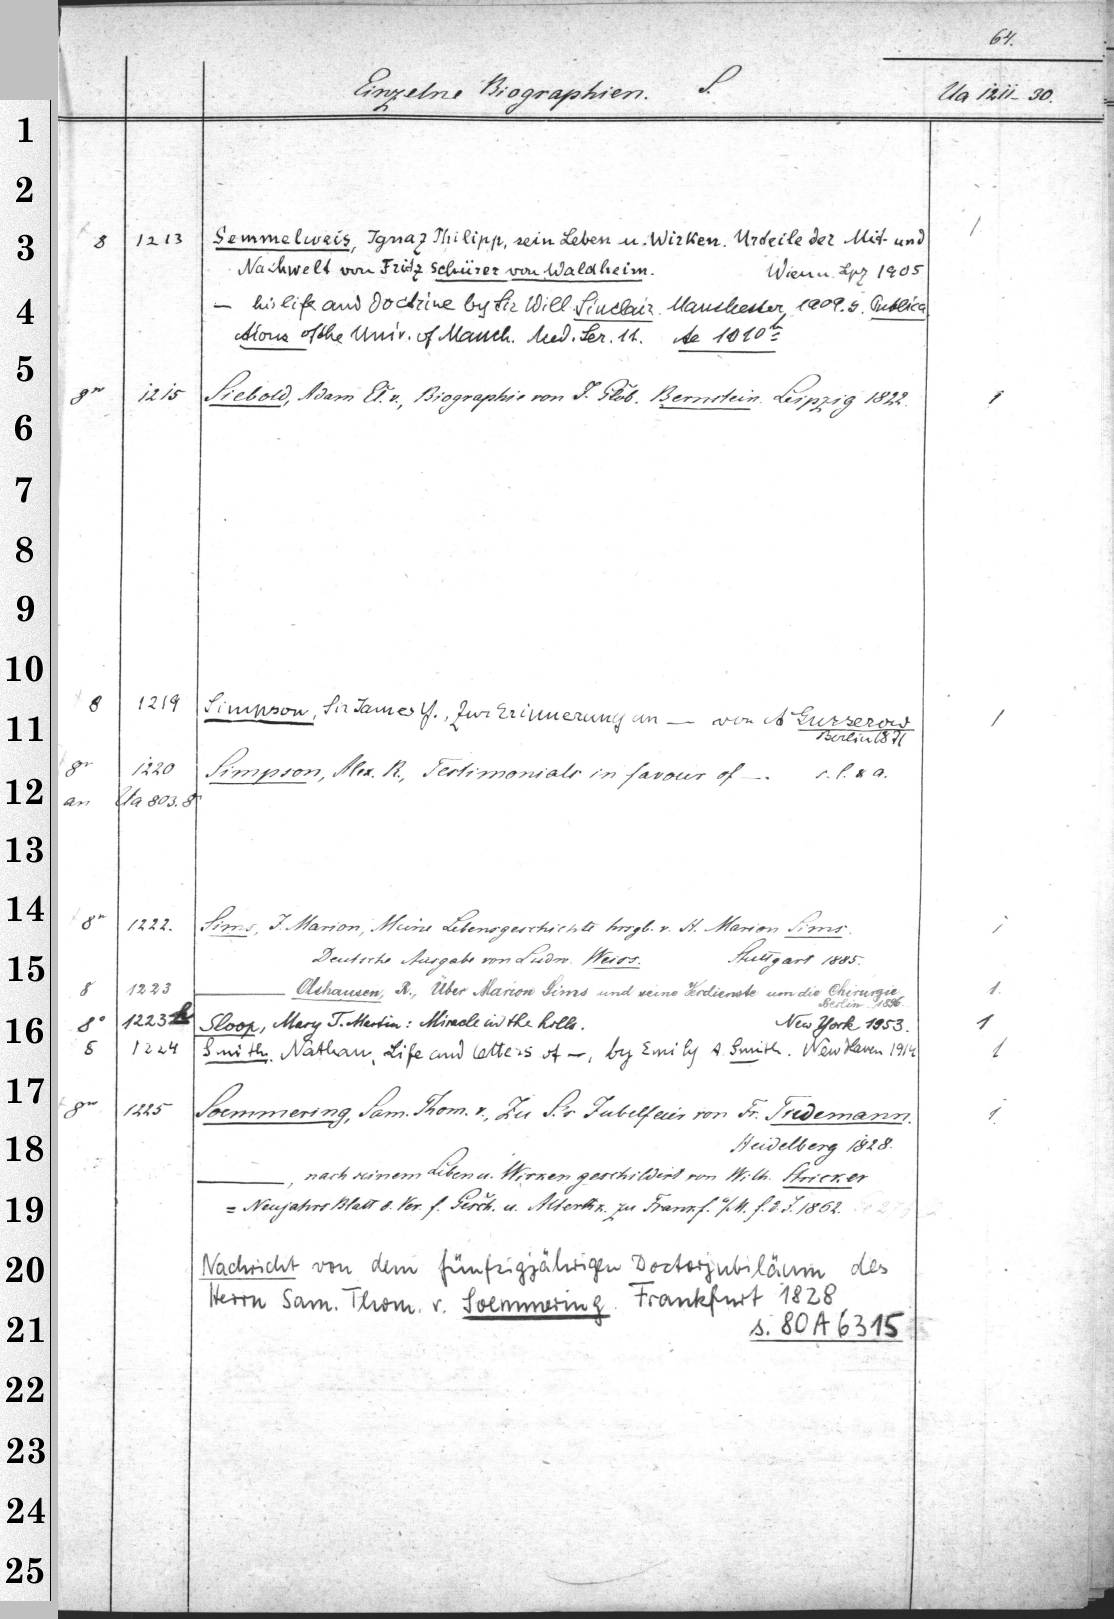 64.
Einzelne Biographien. S. Ua 1211-30.
1
2
3
8 1213 Semmelweis, Ignaz Philipp, sein Leben u. Wirken. Urteile der Mit- und 1
Nachwelt von Fritz Schürer von Waldheim. Wien u. Lpz 1905
4
— his life and doctrine by Sir Will. Sinclair. Manchester, 1909. s. Publica
ations of the Univ. of Manch. Med. Ser. 11. Ae 1010
5
8º 1215 Siebold, Adam El. v., Biographie von J. Glob. Bernstein. Leipzig 1822. 1
6
7
8
9
10
8 1219 Simpson, Sir James Y., Zur Erinnerung an — von A Gusserow 1
Berlin 1871
11
8º 1220 Simpson, Alex. R., Testimonials in favour of —. s. l. & a.
12
an Ua 803. 8º
13
14
8º 1222. Sims, J. Marion, Meine Lebensgeschichte hrsgb. v. H. Marion Sims. 1
Deutsche Ausgabe von Ludw. Weiss. Stuttgart 1885.
15
8 1223 — Olshausen, R., Über Marion Sims und seine Verdienste um die Chirurgie 1.
Berlin 1896
16
8º 1223h Sloop, Mary T. Martin: Miracle in the hills. New York 1953. 1
8 1224 Smith, Nathan, Life and letters of —, by Emily A. Smith. New Haven 1914 1
17
8º 1225 Soemmering, Sam. Thom. v., Zu S.s Jubelfeier von Fr. Tiedemann. 1.
18
Heidelberg 1828.
—, nach seinem Leben u. Wirken geschildert von Wilh. Stricker
19
= Neujahrs Blatt d. Ver. f. Gesch. u. Alterthk. zu Frankf. a/M. f. d. J. 1862.
20
Nachricht von dem fünfzigjährigen Doctorjubiläum des
Herrn Sam. Thom. v. Soemmering. Frankfurt 1828
21
s. 80 A 6315
22
23
24
25